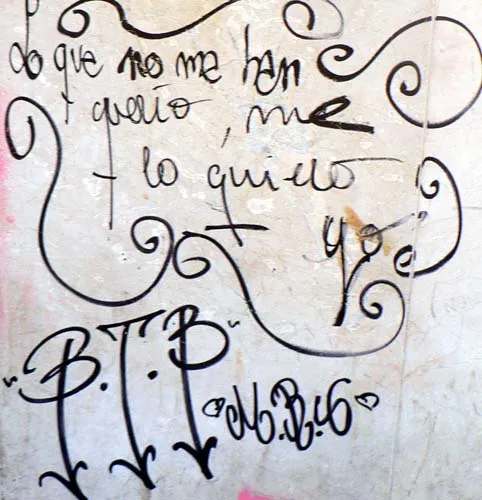 Lo que no me han
querio, me
lo quiero
yo
"B.T.B"
M.B.S